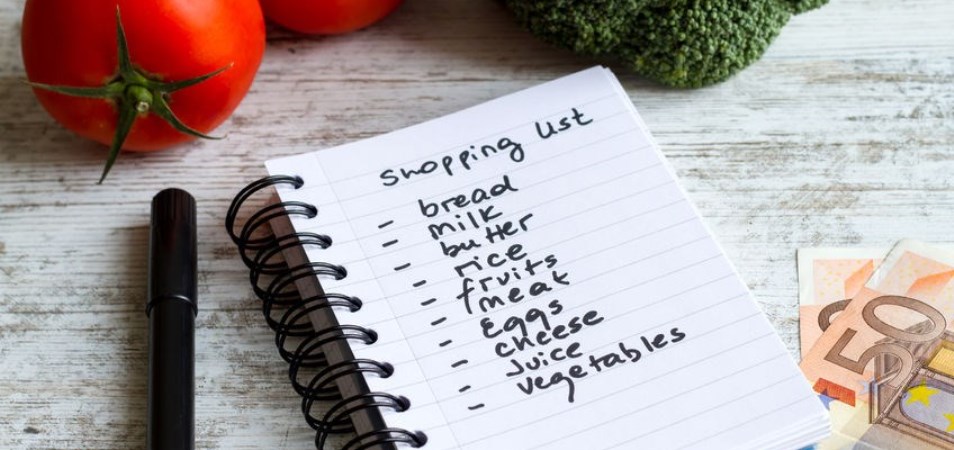 Shopping List
- bread
- milk
- butter
- rice
- fruits
- meat
- Eggs
- cheese
- Juice
- vegetables
50